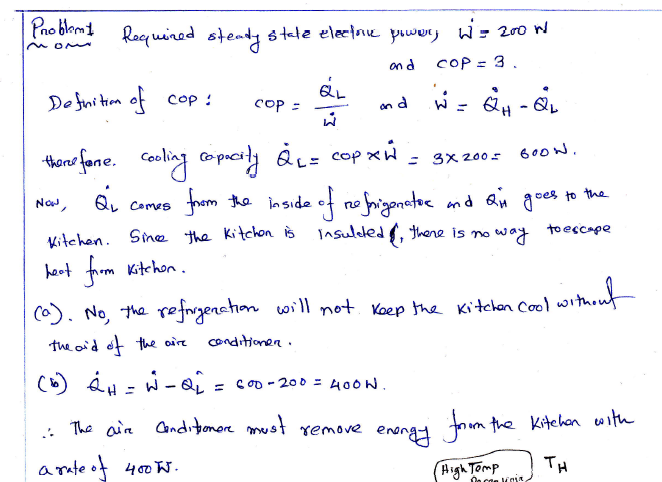 Problem 1 Required steady state electric power, Ẇ = 200 W
and COP = 3.
Definition of COP : COP = Q̇L / Ẇ and Ẇ = Q̇H - Q̇L
therefore. Cooling capacity Q̇L = COP x Ẇ = 3x200 = 600W.
Now, Q̇L comes from the inside of refrigerator and Q̇H goes to the
Kitchen. Since the Kitchen is insulated, there is no way to escape
heat from Kitchen.
(a). No, the refrigeration will not keep the kitchen cool without
the aid of the air conditioner.
(b) Q̇H = Ẇ - Q̇L = 600 - 200 = 400W.
∴ The air Conditioner must remove energy from the Kitchen with
a rate of 400 W.
High Temp TH